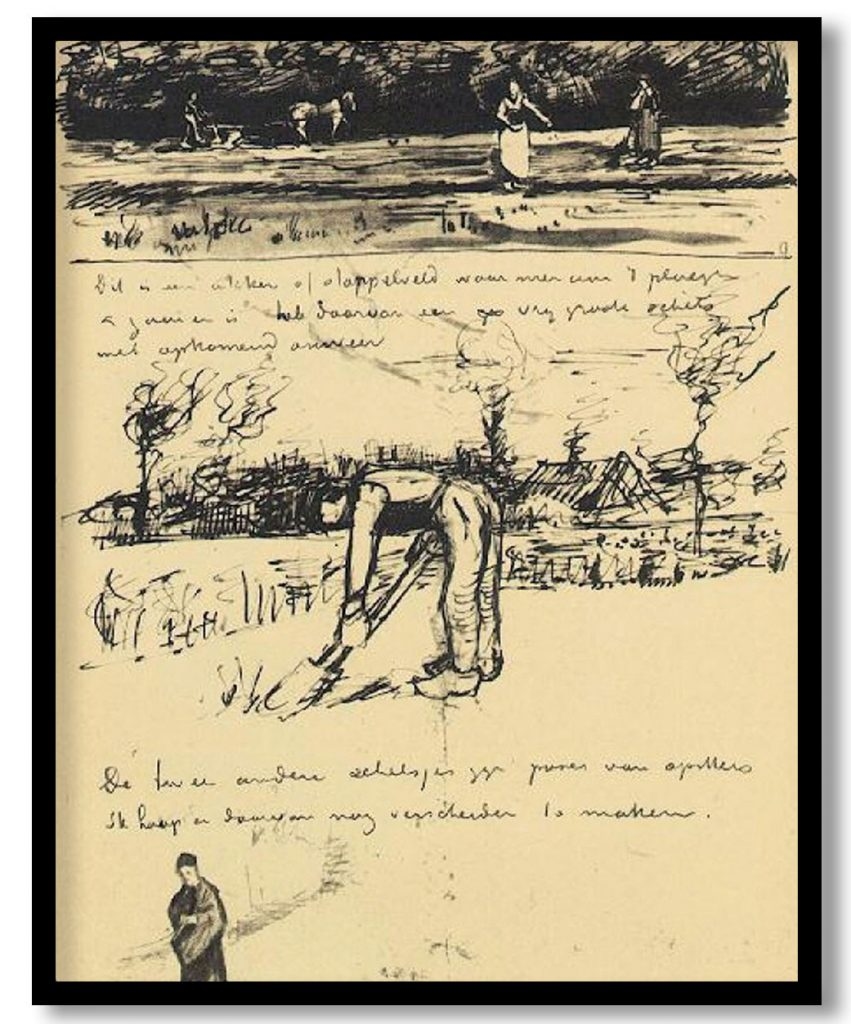 Dit is een akker of stoppelveld waar men aan 't ploegen
& zaaien is heb daarvan een vrij groote schets
met opkomend onweer
De twee andere schetsjes zijn poses van spitters
Ik hoop er daarvan nog verscheiden te maken.